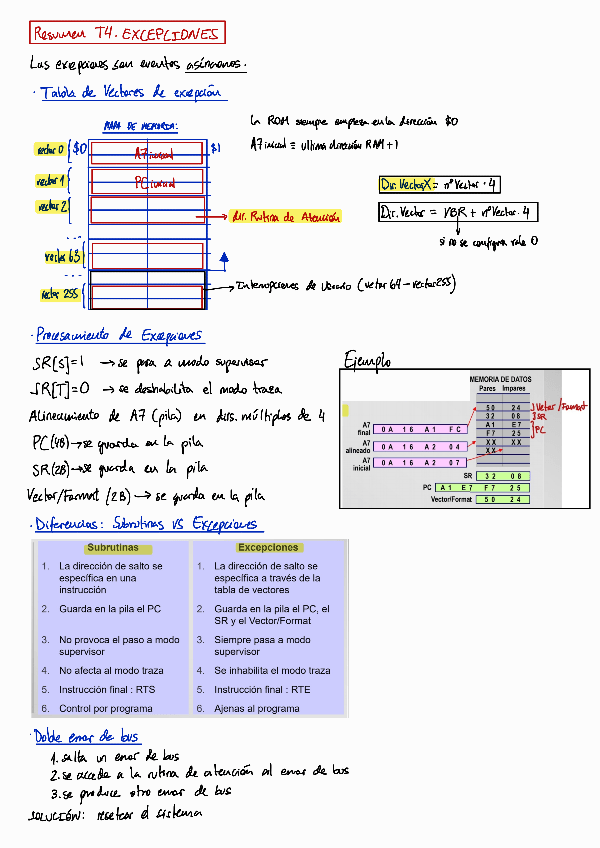 Resumen T4. EXCEPCIONES
Las excepciones son eventos asíncronos.
· Tabla de Vectores de excepción
MAPA DE MEMORIA:
La ROM siempre empieza en la dirección $0
A7 inicial ≡ ultima dirección RAM + 1
vector 0 $0 A7 inicial $1
vector 1 PC inicial
vector 2
→ dir. Rutina de Atención
Dir. Vector X = nº Vector · 4
Dir. Vector = VBR + nº Vector · 4
si no se configura vale 0
vector 63
vector 255
→ Interrupciones de Usuario (vector 64 - vector 255)
· Procesamiento de Excepciones
SR[S]=1 → se pasa a modo supervisor
SR[T]=0 → se deshabilita el modo traza
Alineamiento de A7 (pila) en dirs. múltiplos de 4
PC (4B) → se guarda en la pila
SR (2B) → se guarda en la pila
Vector/Format (2B) → se guarda en la pila
Ejemplo
MEMORIA DE DATOS
Pares Impares
50 24 Vector/Format
32 08 SR
A1 E7 PC
F7 25
XX XX
XX
A7 final 0A 16 A1 FC
A7 alineado 0A 16 A2 04
A7 inicial 0A 16 A2 07
SR 32 08
PC A1 E7 F7 25
Vector/Format 50 24
· Diferencias: Subrutinas VS Excepciones
Subrutinas
1. La dirección de salto se
especifica en una
instrucción
2. Guarda en la pila el PC
3. No provoca el paso a modo
supervisor
4. No afecta al modo traza
5. Instrucción final : RTS
6. Control por programa
Excepciones
1. La dirección de salto se
especifica a través de la
tabla de vectores
2. Guarda en la pila el PC, el
SR y el Vector/Format
3. Siempre pasa a modo
supervisor
4. Se inhabilita el modo traza
5. Instrucción final : RTE
6. Ajenas al programa
· Doble error de bus
1. salta un error de bus
2. se accede a la rutina de atención al error de bus
3. se produce otro error de bus
SOLUCIÓN: resetear el sistema